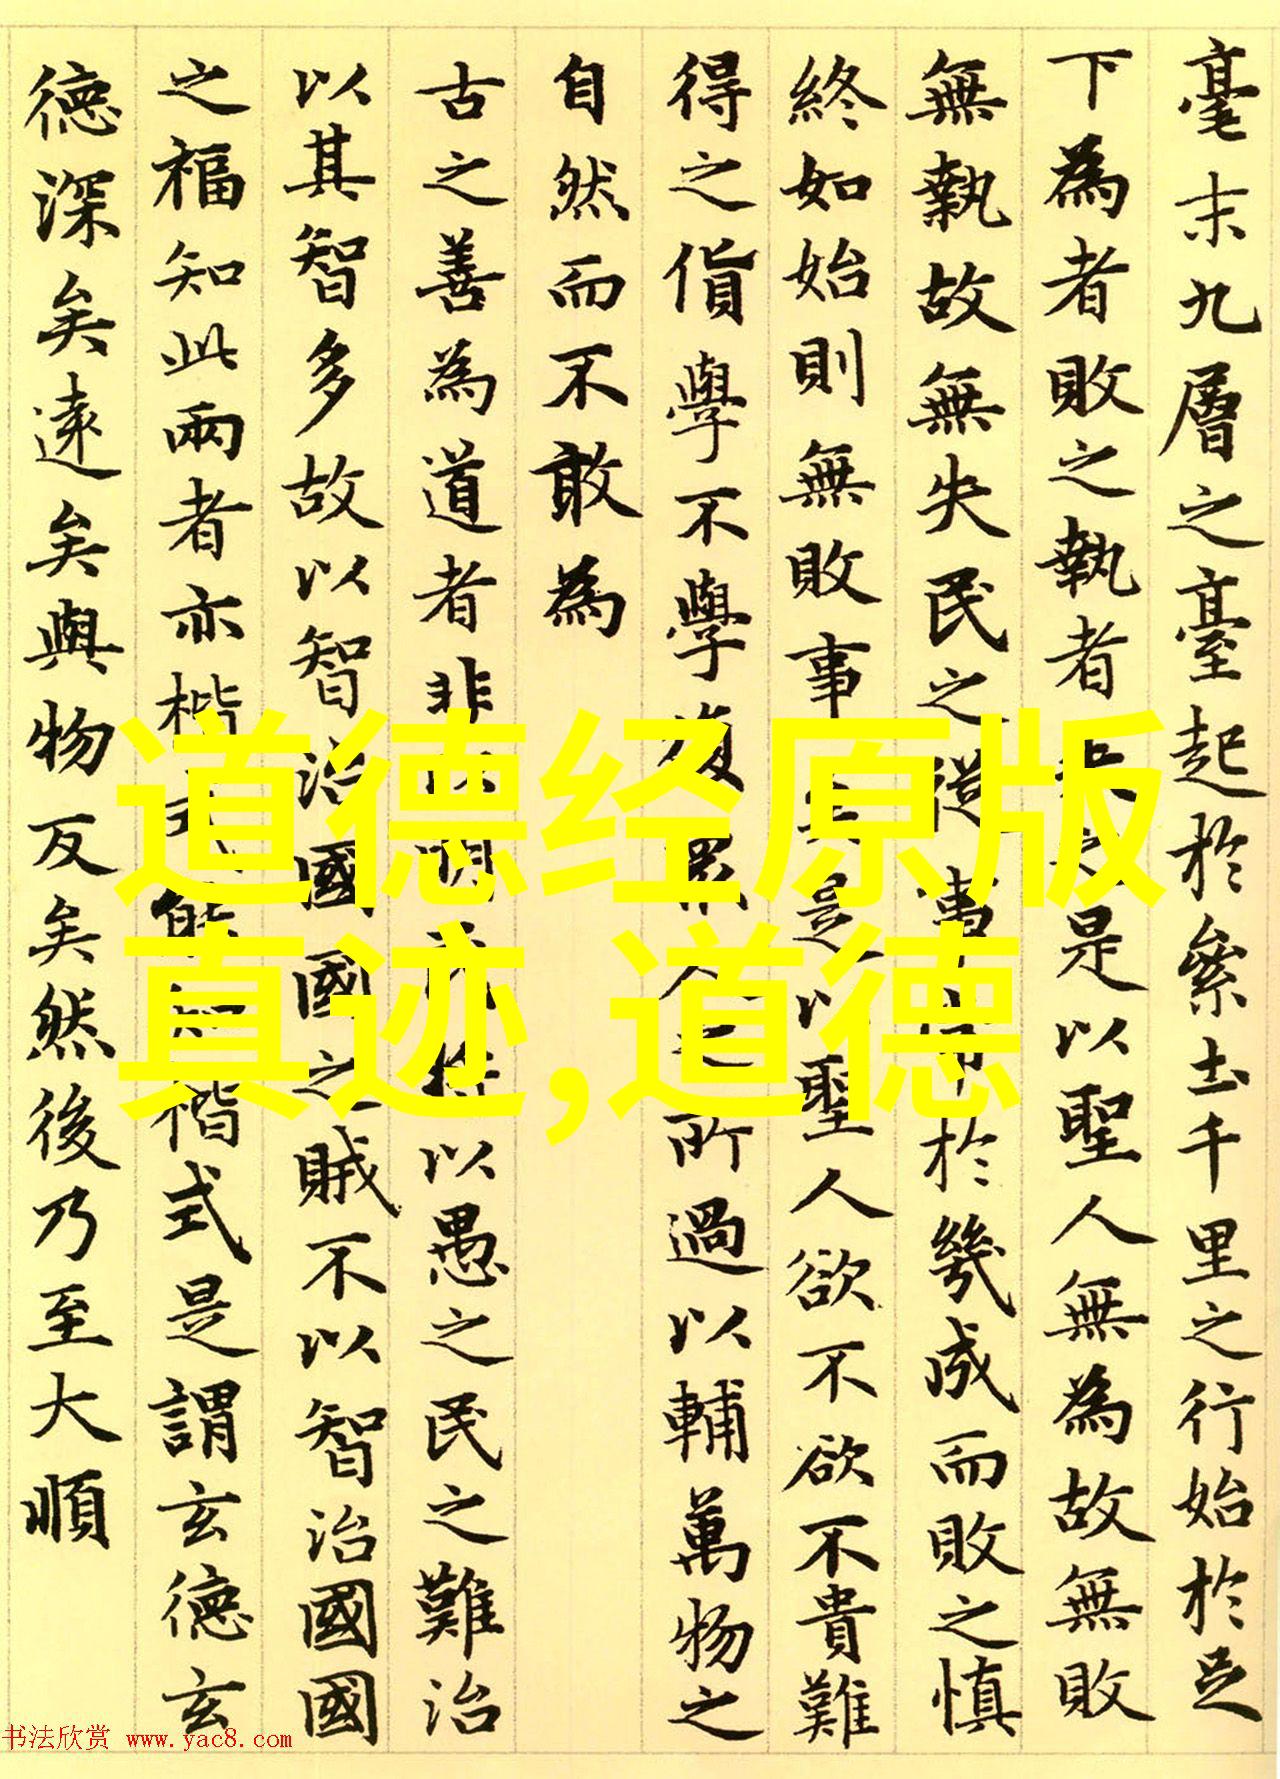 毫末九層之臺起於絫土千里之行始於足
下為者敗之執者失之是以聖人無為故無敗
無執故無失民之從事常於幾成而敗之慎
終如始則無敗事矣是以聖人欲不欲不貴難
得之貨學不學復眾人之所過以輔萬物之
自然而不敢為
古之善為道者非以明民將以愚之民之難治
以其智多故以智治國國之賊不以智治國國
之福知此兩者亦楷式能知楷式是謂玄德玄
德深矣遠矣與物反矣然後乃至大順
道德经原版
真迹,道德
书法欣赏 www.yac8.com